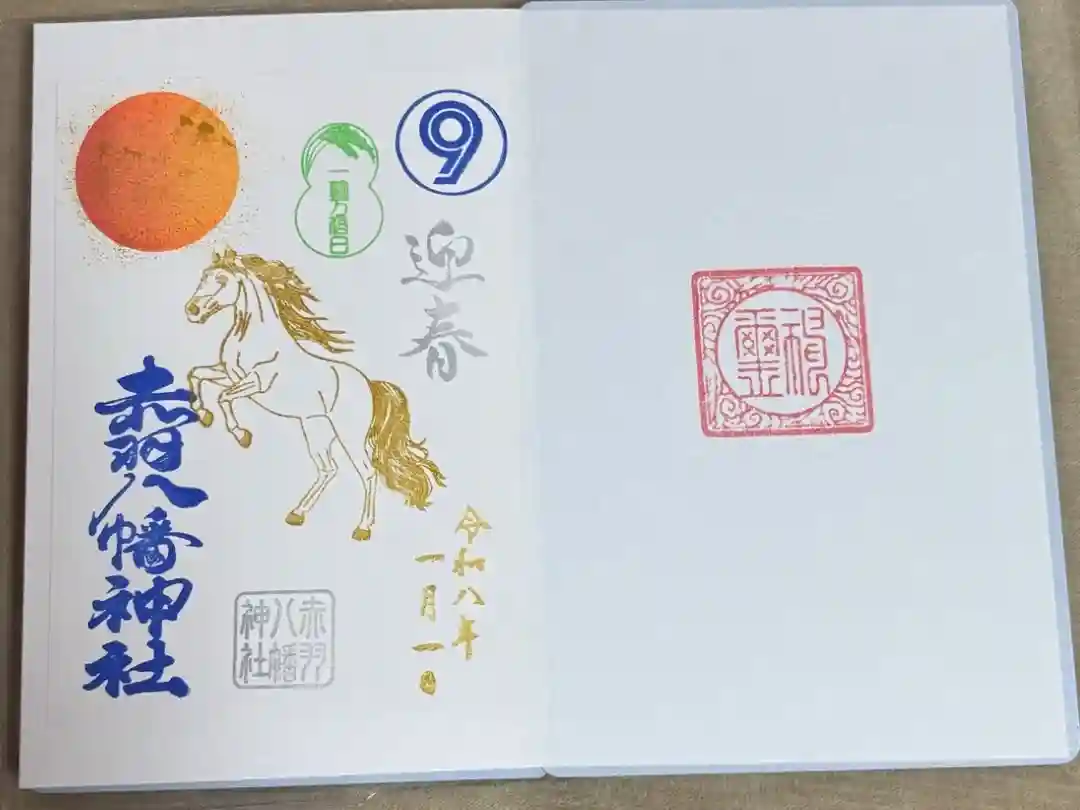 9
迎春
令和八年
一月一日
一粒万倍日
赤羽
八幡
神社
赤羽八幡神社